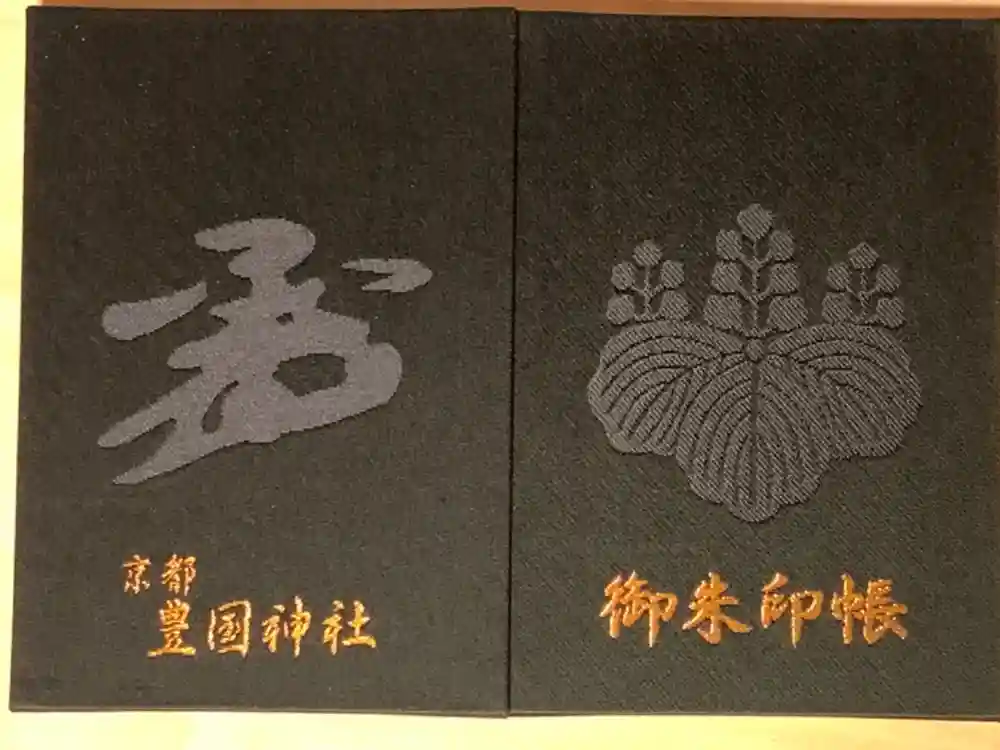 寿
京都
豊国神社
御朱印帳